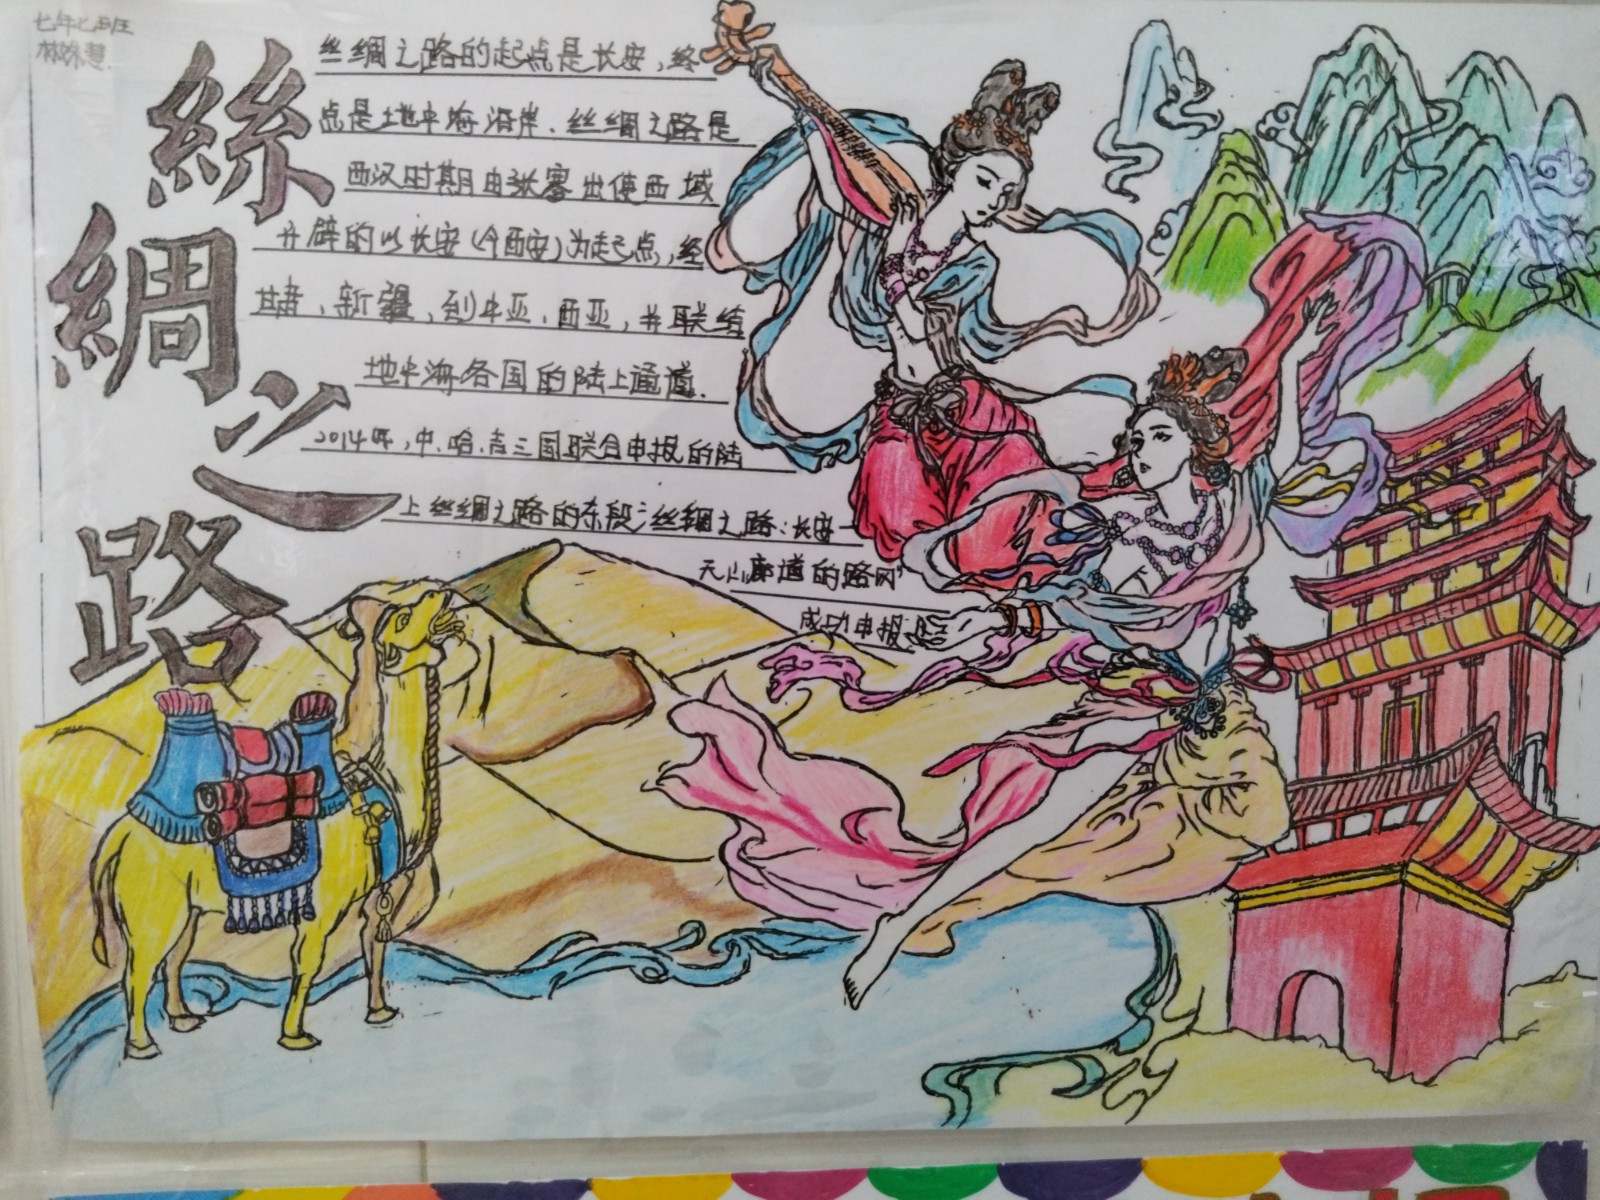 七年七班
絲綢之路
丝绸之路的起点是长安,终
点是地中海沿岸.丝绸之路是
西汉时期由张骞出使西域
开辟的以长安(今西安)为起点,经
甘肃、新疆,到中亚、西亚,并联结
地中海各国的陆上通道.
2014年,中、哈、吉三国联合申报的陆
上丝绸之路的东段"丝绸之路:长安—
天山廊道的路网"
成功申报